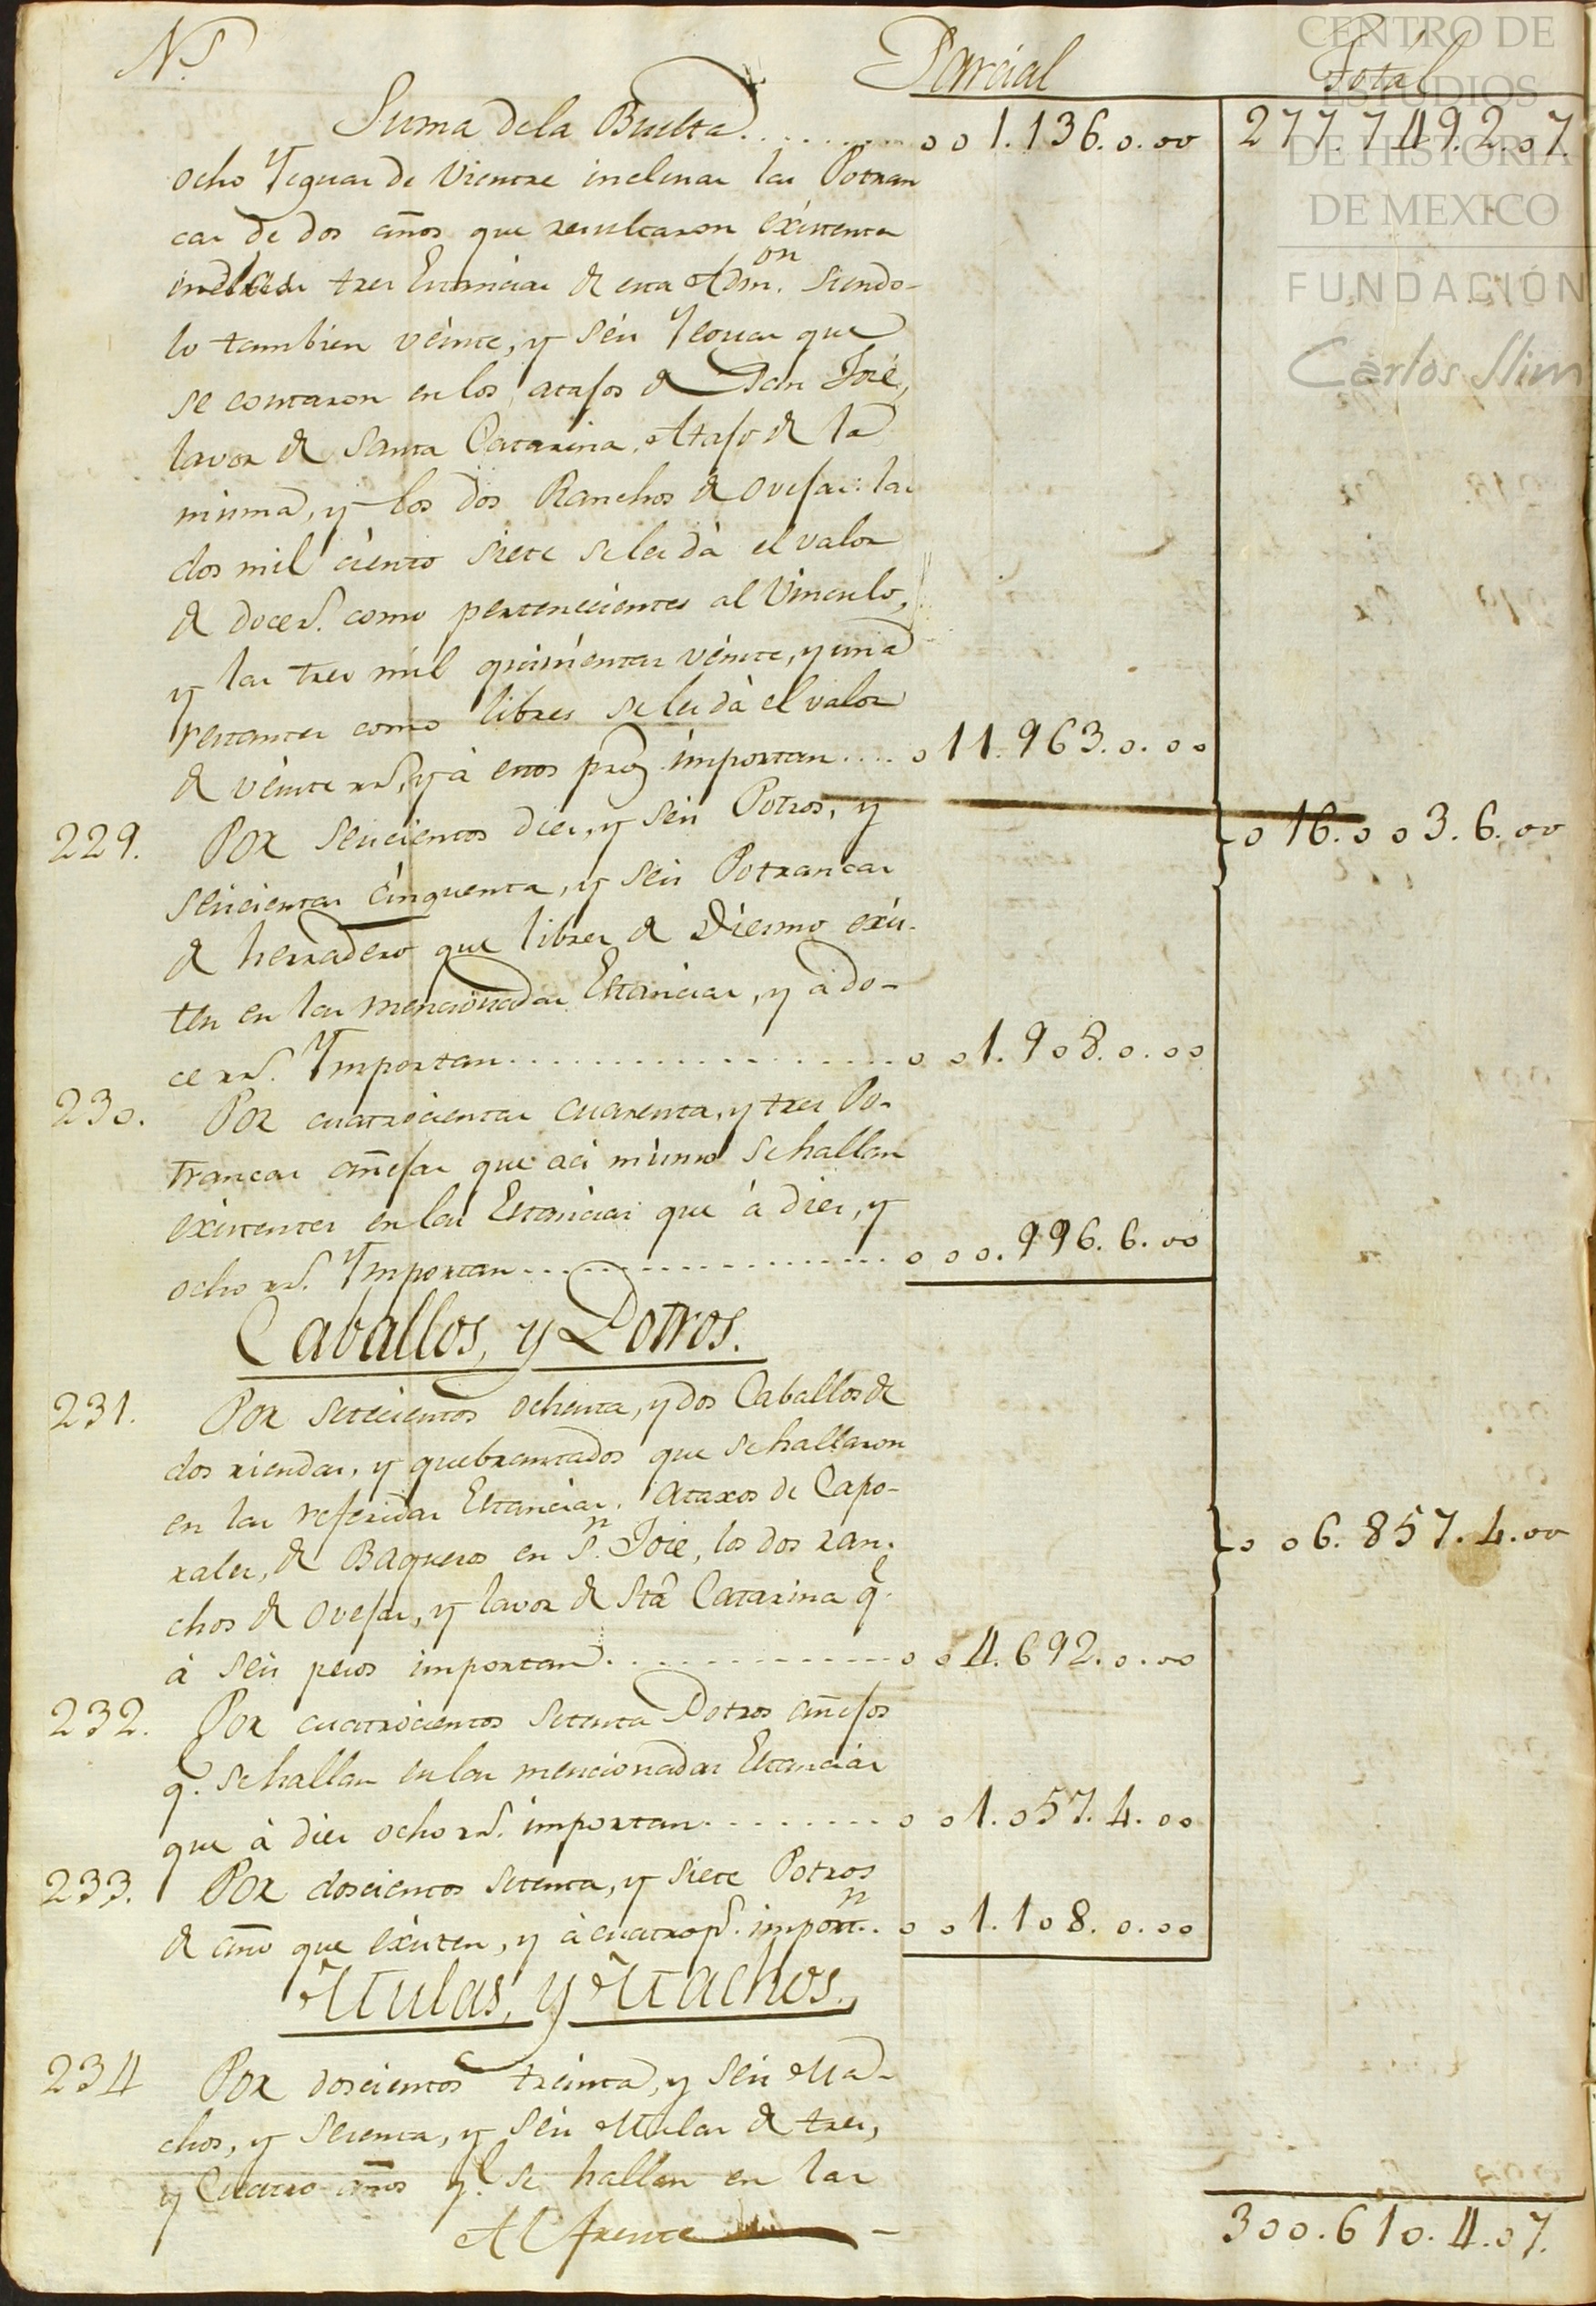 N.º Parcial Total
Suma dela Buelta.......... oo1.136.0.00 277.749.2.07.
ocho Yeguas de Vientre inclusas las Potran
cas de dos años que resultaron existentes
en las tres Estancias de esta Admon. siendo-
lo tambien veinte, y seis Yeguas que
se contaron en los atajos de San José,
lavor de Santa Catarina, Atajo de la
misma, y los dos Ranchos de ovejas: las
dos mil ciento siete se les dà el valor
de doce rs. como pertenecientes al Vinculo,
y las tres mil quinientas veinte, y una
restantes como libres se les dà el valor
de veinte rrs. y à estos pros. importan.... o11.963.0.00
}o16.oo3.6.00
229. Por seiscientos diez, y seis Potros, y
seiscientas cinquenta, y seis Potrancas
de herradero que libres de Diesmo exis-
ten en las mencionadas Estancias, y à do-
ce rrs. Ymportan.................. oo1.908.0.00
230. Por cuatrocientas cuarenta, y tres Po-
trancas añejas que aci mismo se hallan
existentes en las Estancias que à diez, y
ocho rrs. Ymportan.................. ooo.996.6.00
Caballos, y Potros.
231. Por setecientos ochenta, y dos Caballos de
dos riendas, y quebrantados que se hallaron
en las referidas Estancias. Ataxos de Capo-
rales, de Baqueros en Sn. José, los dos ran-
chos de ovejas, y lavor de Sta Catarina q.e
}oo6.857.4.00
à seis pesos importan.............. oo4.692.0.00
232. Por cuatrocientos setenta Potros añejos
q.e se hallan en las mencionadas Estancias
que à diez ocho rrs. importan......... oo1.057.4.00
233. Por doscientos setenta, y siete Potros
de año que existen, y à cuatro ps. import.n. oo1.108.0.00
Mulas, y Machos.
234 Por doscientos treinta, y seis Ma-
chos, y sesenta, y seis Mulas de tres,
y Cuatro años q.e se hallan en las
Al frente 300.610.4.07.
CENTRO DE
ESTUDIOS
DE HISTORIA
DE MEXICO
FUNDACIÓN
Carlos Slim